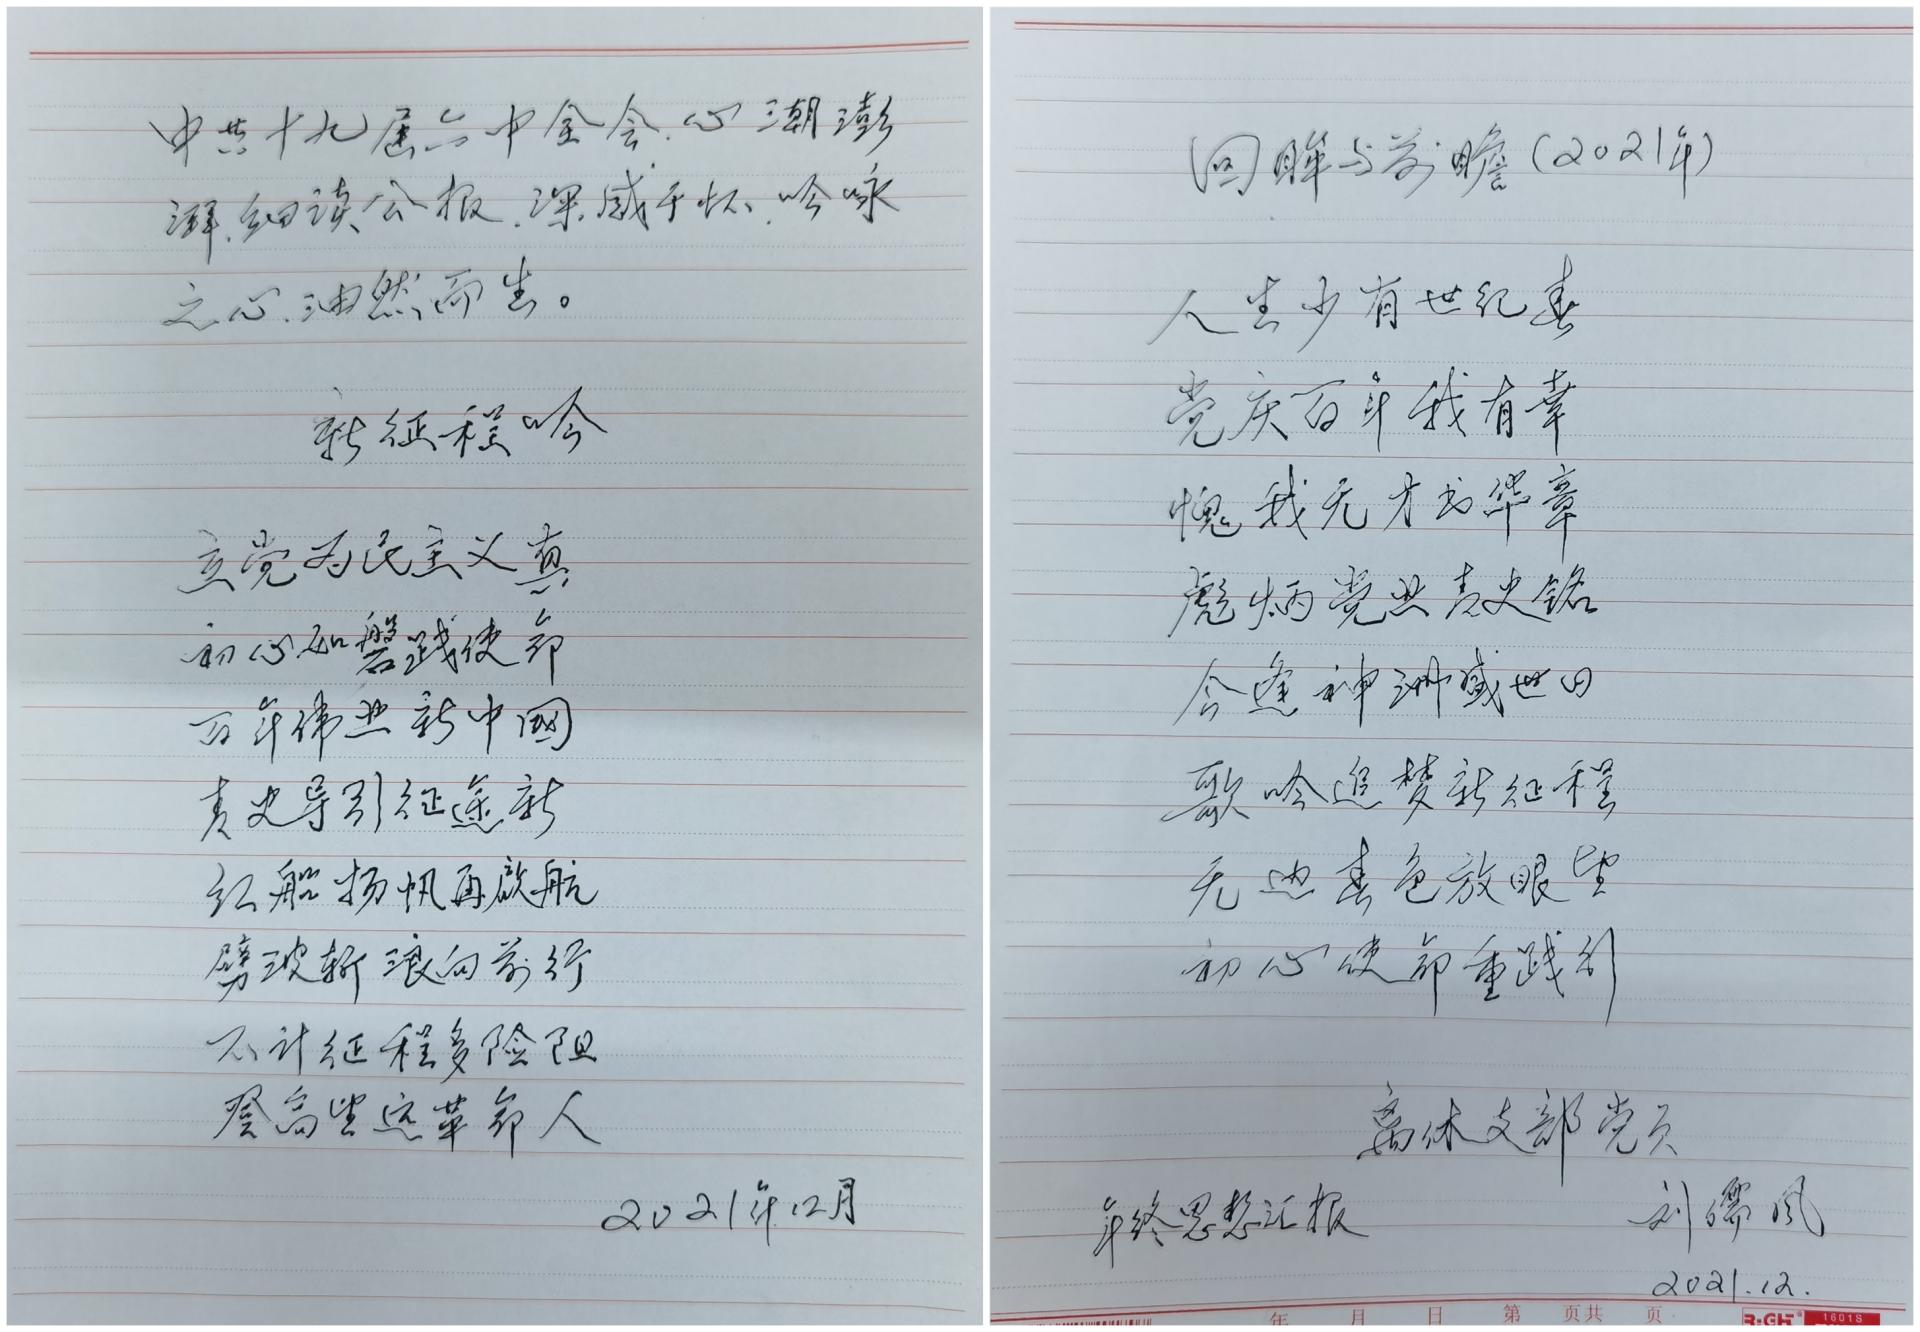 中共十九届六中全会,心潮澎
湃,细读公报,深感于怀,吟咏
之心,油然而生。
新征程吟
立党为民主义真
初心如磐践使命
百年伟业新中國
青史导引征途新
红船扬帆再啟航
劈波斩浪向前行
不计征程多险阻
登高望远革命人
2021年12月
回眸与前瞻(2021年)
人生少有世纪春
党庆百年我有幸
愧我无才书华章
彪炳党业青史铭
今逢神洲盛世日
歌吟追梦新征程
无边春色放眼望
初心使命重践行
离休支部党员
年终思想汇报 刘儒风
2021.12.
年 月 日 第 页共 页
1601S